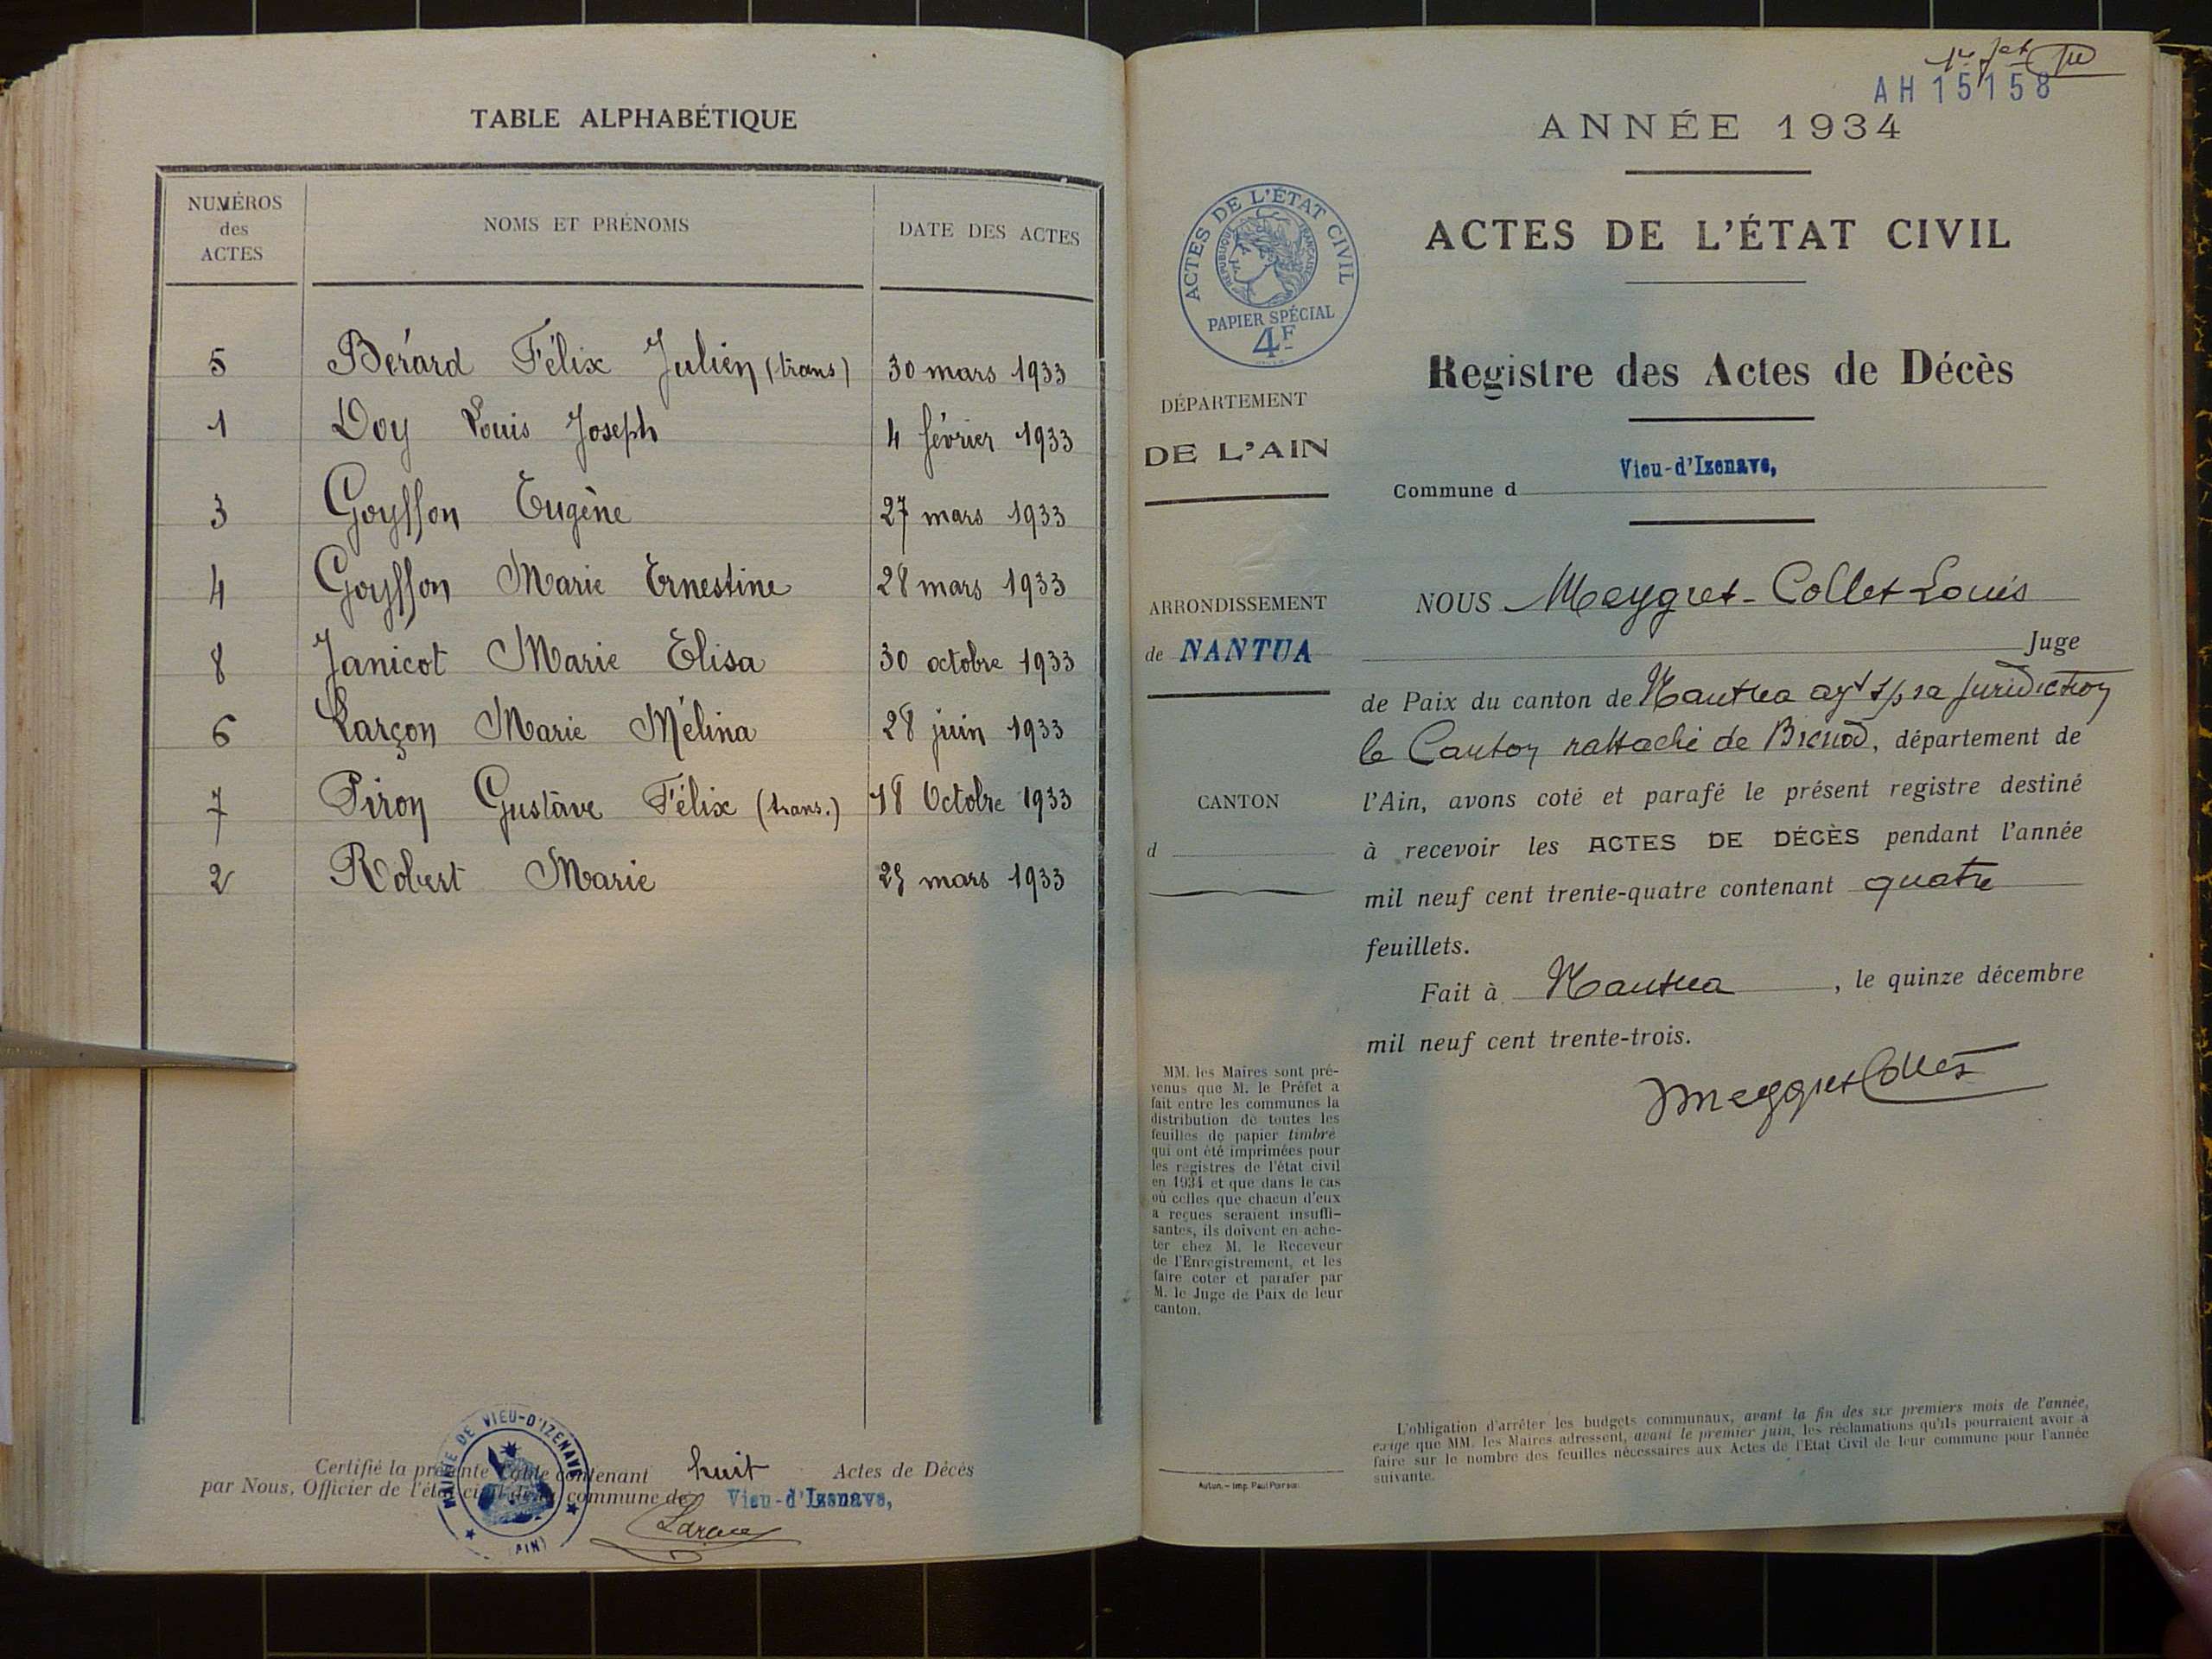 TABLE ALPHABÉTIQUE
NUMÉROS
des
ACTES
NOMS ET PRÉNOMS
DATE DES ACTES
5 Berard Félix Julien (trans) 30 mars 1933
1 Doy Louis Joseph 4 février 1933
3 Goyffon Eugène 27 mars 1933
4 Goyffon Marie Ernestine 28 mars 1933
8 Janicot Marie Elisa 30 octobre 1933
6 Larçon Marie Mélina 28 juin 1933
7 Piron Gustave Félix (trans.) 18 Octobre 1933
2 Robert Marie mars 1933
MAIRIE DE VIEU-D'IZENAVE
(AIN)
Certifié la présente table contenant huit Actes de Décès
par Nous, Officier de l'état civil de la commune de Vieu-d'Izenave,
AH 15158
ANNÉE 1934
ACTES DE L'ÉTAT CIVIL
RÉPUBLIQUE FRANÇAISE
PAPIER SPÉCIAL
4F
ACTES DE L'ÉTAT CIVIL
Registre des Actes de Décès
DÉPARTEMENT
DE L'AIN
Vieu-d'Izenave,
Commune d
ARRONDISSEMENT
de NANTUA
CANTON
d
NOUS Meygret-Collet Louis
Juge
de Paix du canton de Nantua ayt ss sa juridiction
le Canton rattaché de Brénod, département de
l'Ain, avons coté et parafé le présent registre destiné
à recevoir les ACTES DE DÉCÈS pendant l'année
mil neuf cent trente-quatre contenant quatre
feuillets.
Fait à Nantua, le quinze décembre
mil neuf cent trente-trois.
Meygret Collet
MM. les Maires sont pré-
venus que M. le Préfet a
fait entre les communes la
distribution de toutes les
feuilles de papier timbré
qui ont été imprimées pour
les registres de l'état civil
en 1934 et que dans le cas
où celles que chacun d'eux
a reçues seraient insuffi-
santes, ils doivent en ache-
ter chez M. le Receveur
de l'Enregistrement, et les
faire coter et parafer par
M. le Juge de Paix de leur
canton.
Autun. - Imp. Paul
L'obligation d'arrêter les budgets communaux, avant la fin des six premiers mois de l'année,
exige que MM. les Maires adressent, avant le premier juin, les réclamations qu'ils pourraient avoir à
faire sur le nombre des feuilles nécessaires aux Actes de l'Etat Civil de leur commune pour l'année
suivante.